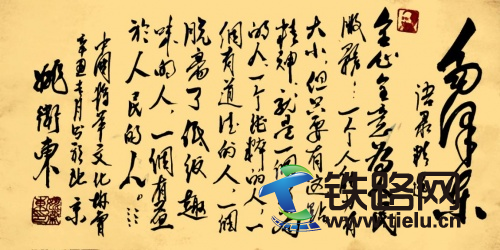 毛泽东
语录
全心全意为人民
服務…一个人能力有
大小，但只要有这點
精神，就是一個高尚
的人，一个純粹的人，一
個有道德的人，一個
脱離了低级趣
味的人，一個有益
於人民的人。…
中國将军文化
辛丑 月 北京
姚衛東
铁路网
www.tielu.cn